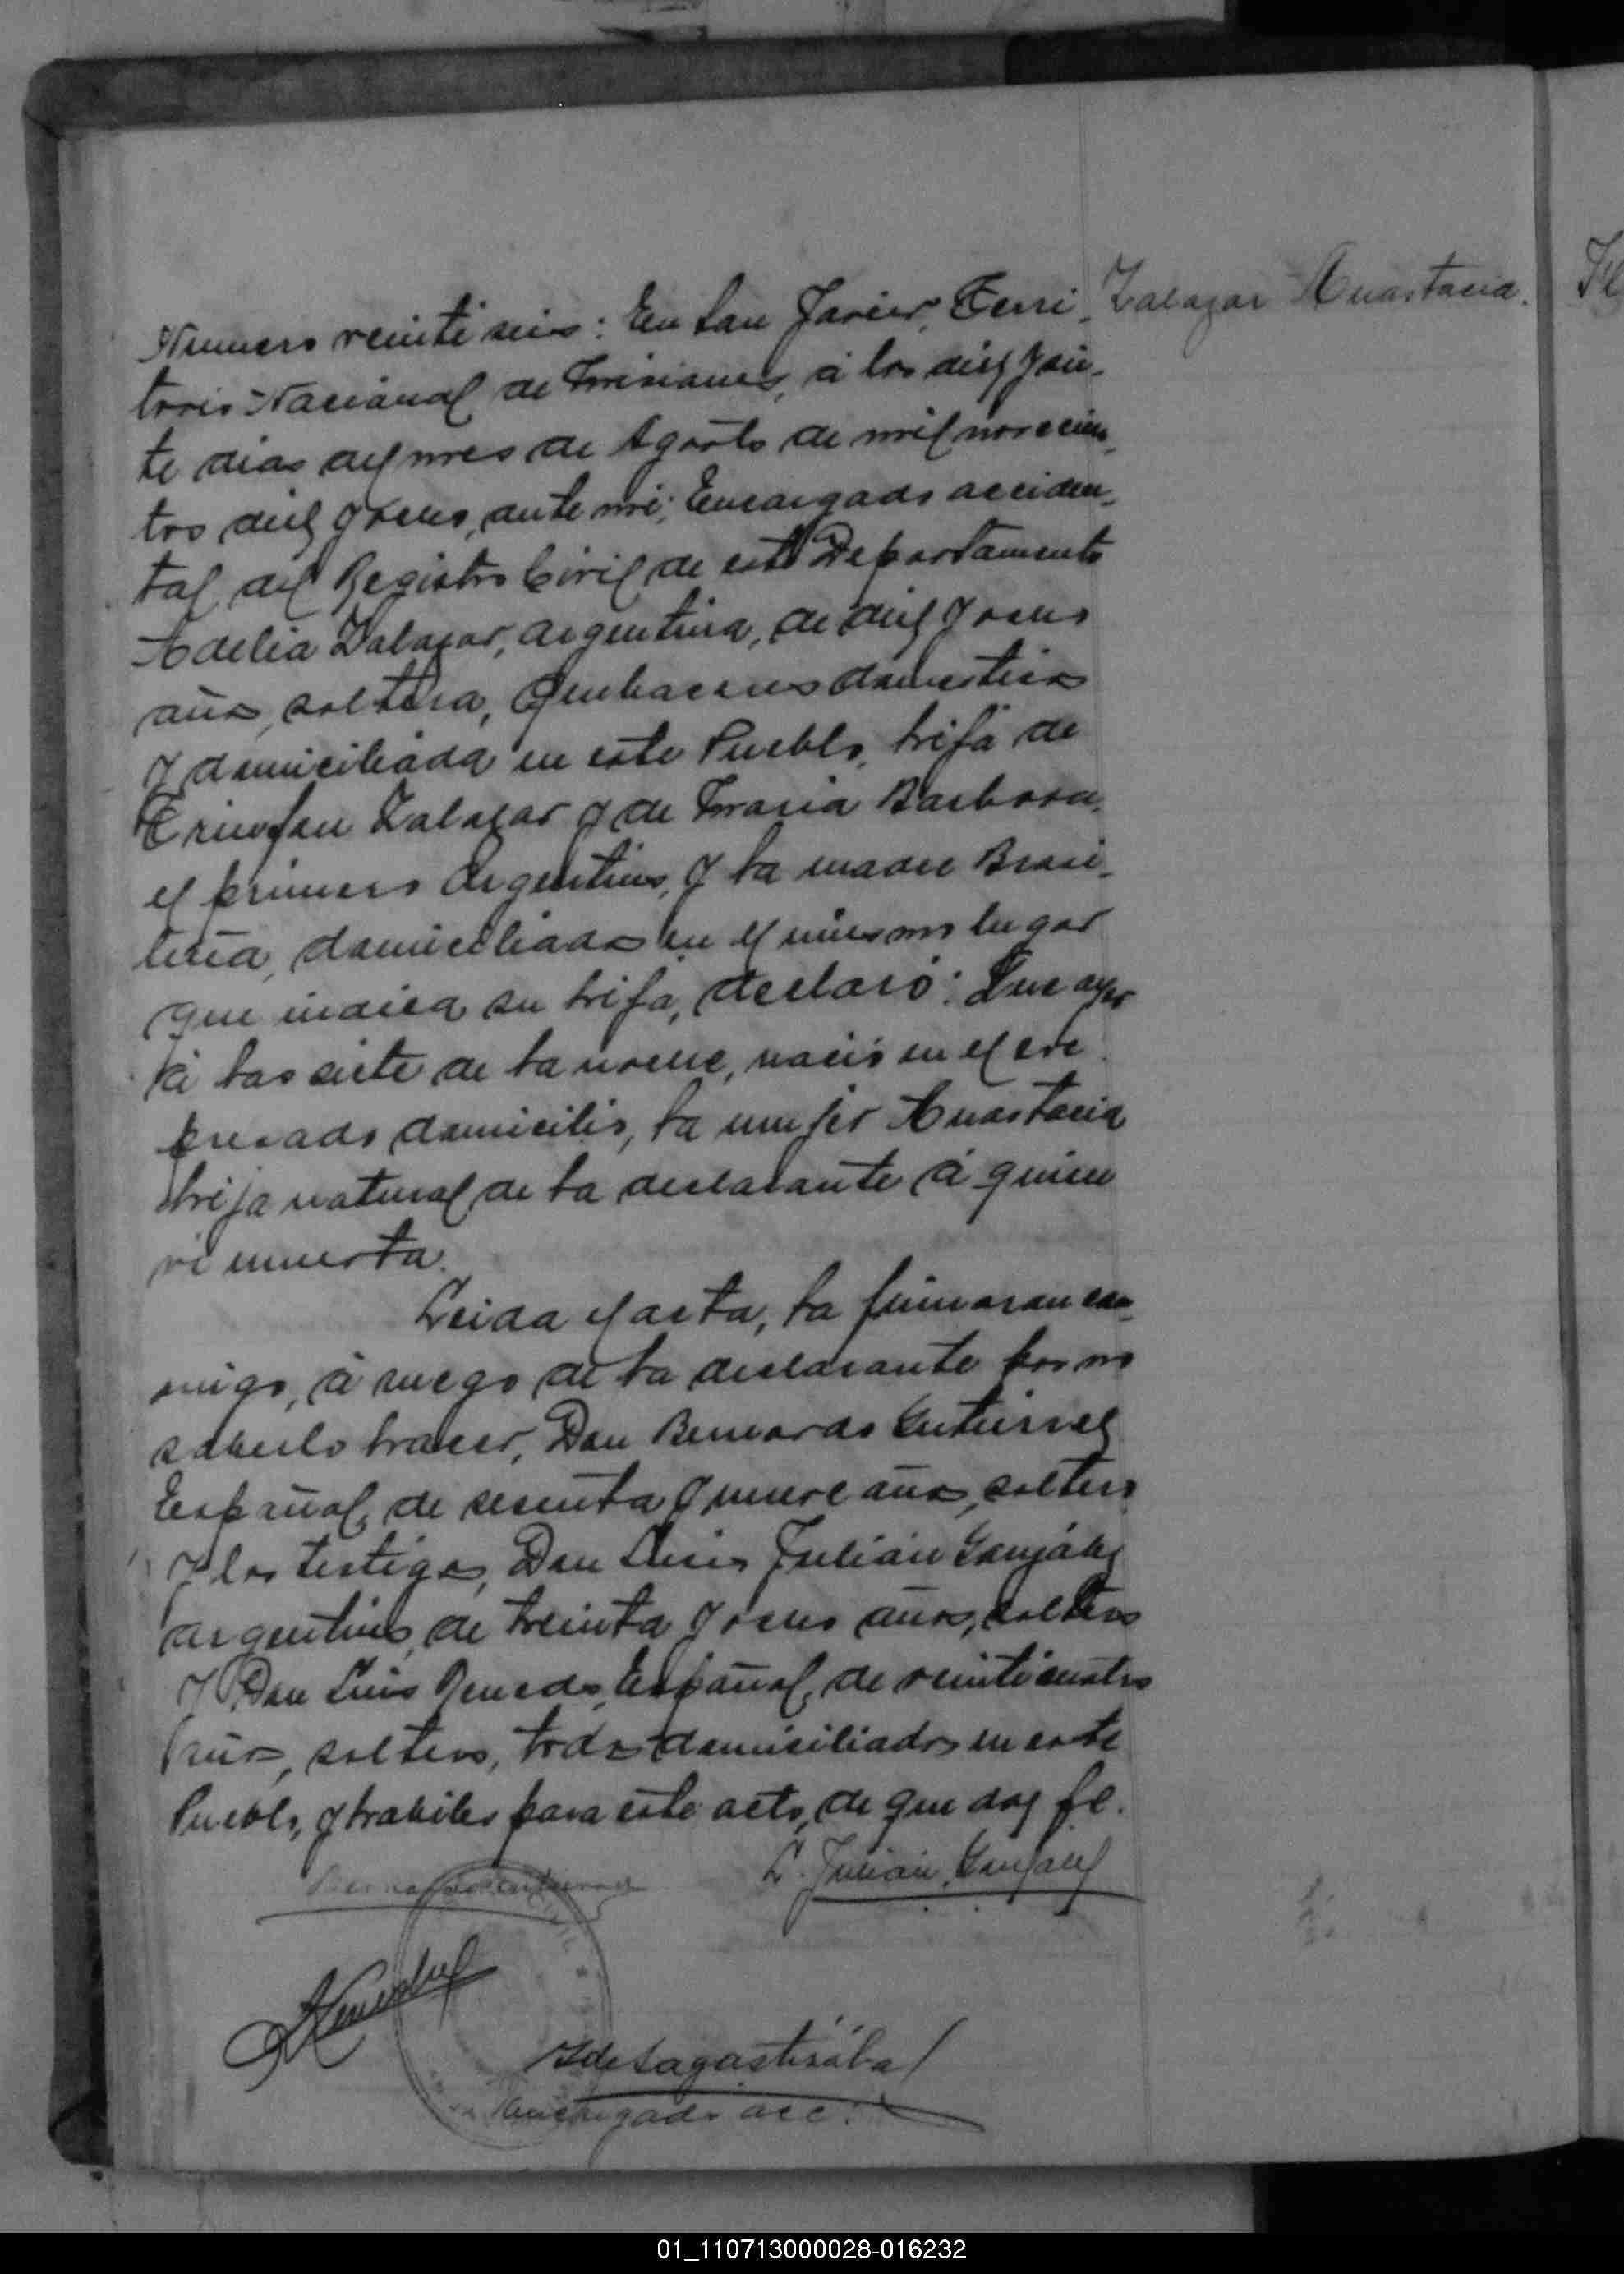 Zalazar Anastacia.
Numero veinti seis: En San Javier, Terri-
torio Nacional de Misiones, á los diez y sie-
te dias del mes de Agosto de mil novecien-
tos diez y ocho, ante mi; Encargado acciden-
tal del Registro Civil de este Departamento
Adelia Zalazar, argentina, de diez y ocho
años, soltera, Quehaceres domesticos
y domiciliada en este Pueblo, hija de
Zalazar y de Maria Barbosa,
el primero Argentino, y la madre Brasi-
lera, domiciliados en el mismo lugar
que indica su hija, declaró: Que ayer
á las siete de la noche, nació en el ex-
presado domicilio, la mujer Anastacia
hija natural de la declarante á quien
vi muerta.
Leida el acta, la firmaron con-
migo, á ruego de la declarante por no
saberlo hacer, Don Bernardo Gutierrez
Español, de sesenta y nueve años, soltero
y los testigos, Don Luis Julián González
argentino, de treinta y ocho años, soltero
y Don Luis Español, de veinticuatro
años, soltero, todos domiciliados en este
Pueblo, y habiles para este acto, de que doy fe.
Bernardo Gutierrez
L. Julián González
Encargado acc.
01_110713000028-016232